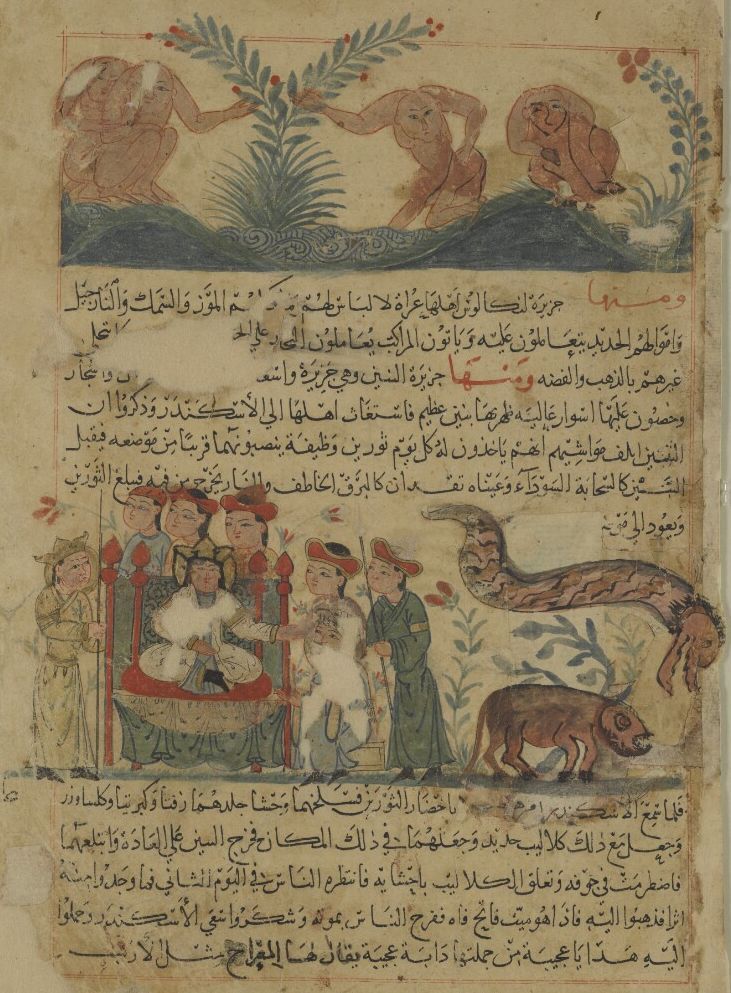 ومنها جزيرة لنكالوس اهلها عراة لا لباس لهم الموز والسمك والنارجيل
واموالهم الحديد يتعاملون عليه وياتون المراكب يعاملون التجار علي
غيرهم بالذهب والفضه ومنها جزيرة التنين وهي جزيرة واسعة واشجار
وحصون عليها اسوار عالية ظهر بها تنين عظيم فاستغاث اهلها الي الاسكندر وذكروا ان
التنين اتلف مواشيهم انهم ياخذون له كل يوم ثورين وظيفة ينصبونهما قريبا من موضعه فيقبل
التنين كالسحابة السوداء وعيناه تقدان كالبرق الخاطف والنار يخرج من فيه فيبلغ الثورين
ويعود الي موضعه
فلما سمع الاسكندر امر باحضار الثورين فسلخهما وحشا جلدهما زفتا وكبريتا وكلسا وزر
وجعل مع ذلك كلاليب حديد وجعلهما في ذلك المكان فخرج التنين علي العادة وابتلعهما
فاضطرمت في جوفه وتعلق الكلاليب باحشايه فانتظره الناس في اليوم الثاني فما وجدوا منه
اثرا فذهبوا اليه فاذا هو ميت فاتح فاه ففرح الناس بموته وشكروا سعي الاسكندر وحملوا
اليه هدايا عجيبة من جملتها دابة عجيبة يقال لها المعراج مثل الارنب